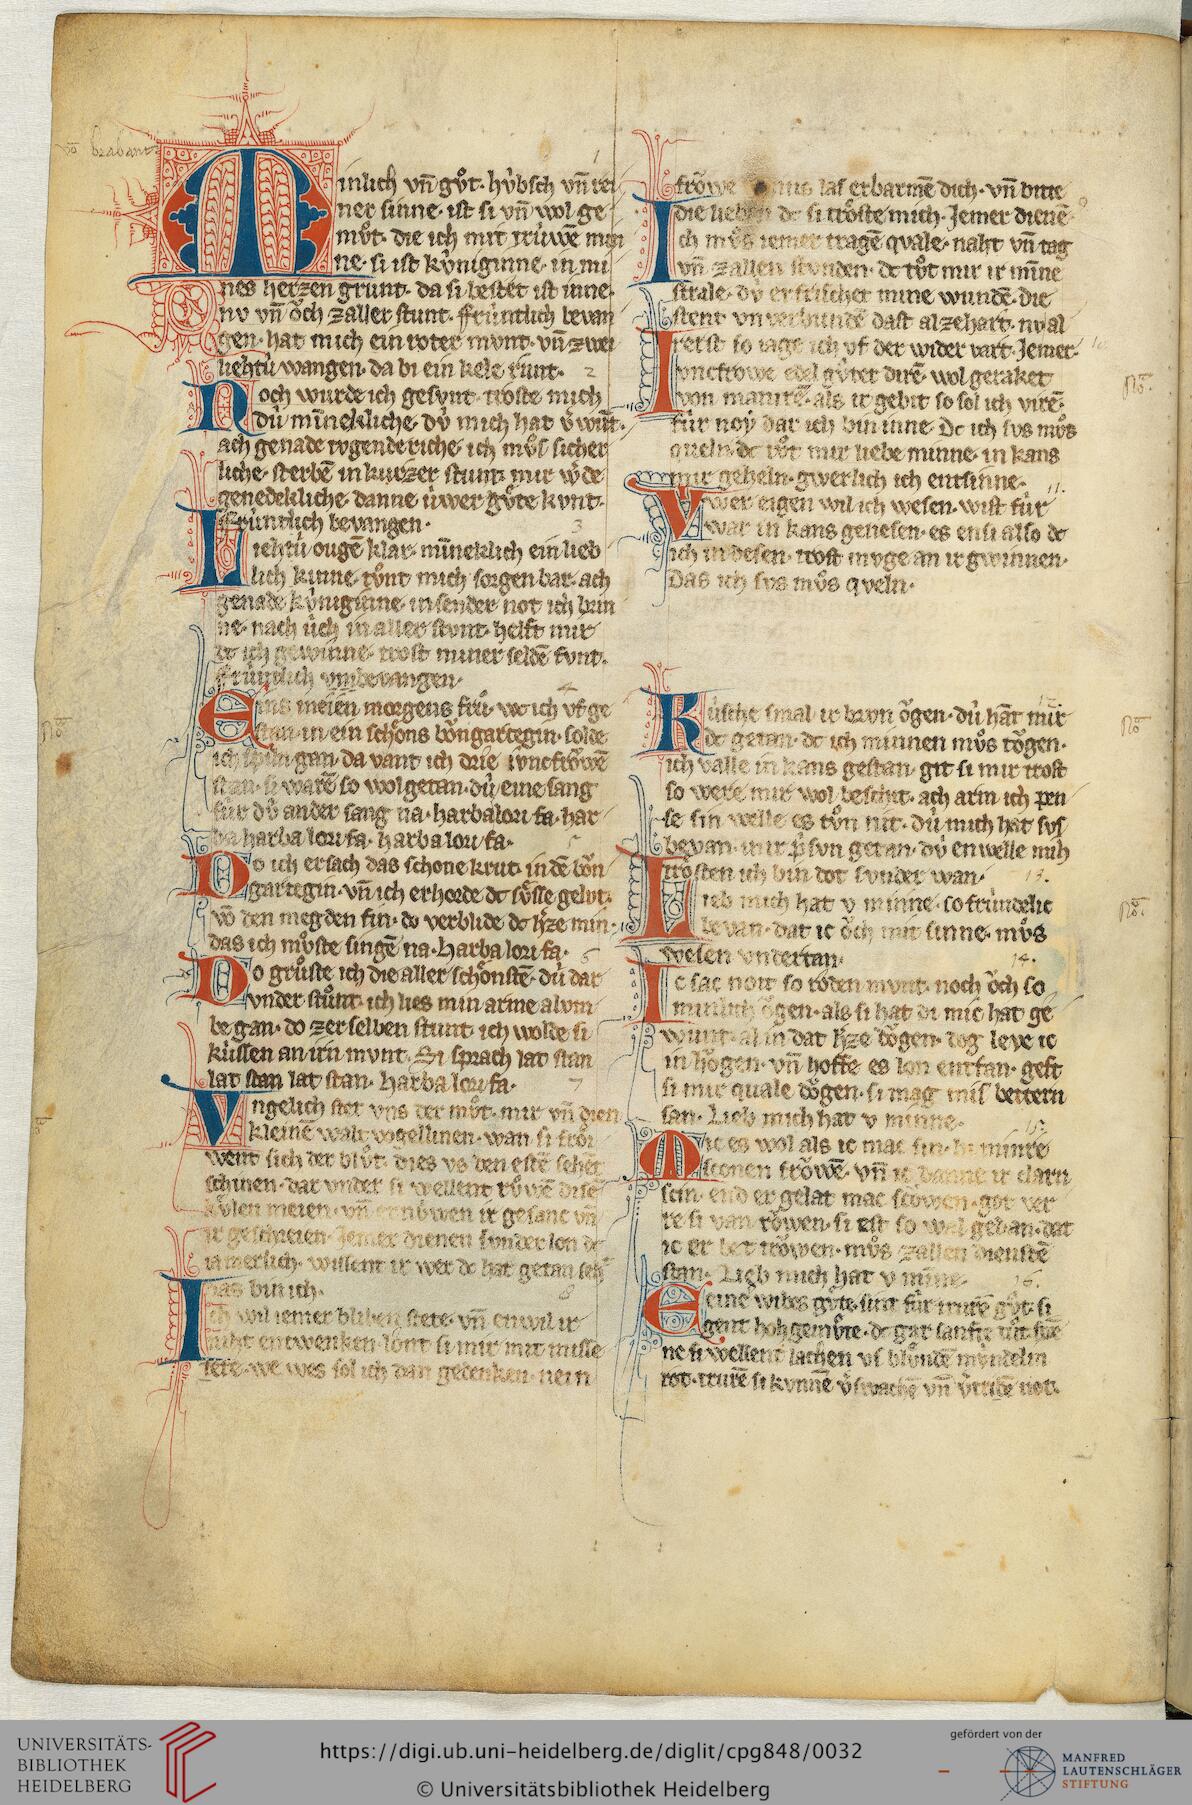 vō brabant
Minlich vn̄ gůt. hv́bsch vn̄ rei
ner sinne. ist si vn̄ wol ge
mv̊t. die ich mit trúwē mei
ne. si ist kv́niginne. in mi
nes herzen grunt. da si bestet ist inne.
nv vn̄ ǒch zaller stunt. frúntlich bevan
gen. hat mich ein roter mvnt. vn̄ zwei
liehtú wangen. da bi ein kele runt.
Noch wurde ich gesvnt. troste mich
dú mīnekliche. dv́ mich hat v̓wūt.
ach genade tvgende riche. ich mv̊s sicher
liche. sterbē in kurzer stunt. mir w̓de
genedekliche. danne úwer gv̊te kvnt.
Frúntlich bevangen.
Liehtú ougē klar. mīneklich ein lieb
lich kinne. tv̊nt mich sorgen bar. ach
genade kv́niginne. in sender not ich brin
ne. nach úch in aller stvnt. helft mir
dc ich gewinne. trost miner seldē fvnt.
Frúntlich vmbevangen.
Eins meien morgens frů. wc ich vf ge
stan. in ein schőns bǒngartegin. solde
ich spiln gan. da vant ich drie ivncfrǒwē
stan. si warē so wol getan. dú eine sang
für dv́ ander sang na. harbalori fa. har
ba harba lori fa. harba lori fa.
Do ich ersach das schone krut. in dē bǒn
gartegin. vn̄ ich erhorde dc sůsse gelvt.
vō den megden fin. do verblide dc h̓ze min.
das ich mv̊ste singē na. harba lori fa.
Do grůste ich die aller schőnstē. dú dar
vnder stůnt. ich lies min arme alvm
be gan. do zer selben stunt. ich wolde si
kússen an irn mvnt. Si sprach lat stan
lat stan lat stan. harba lori fa.
Vngelich stet vns der mv̊t. mir vn̄ dien
kleinē walt vogellinen. wan si frǒi
went sich der blv̊t. dies vs den estē sehēt
schinen. dar vnder si wellent rv̊wē disē
kůlen meien. vn̄ ernúwen ir gesanc vn̄
ir geschreien. Jemer dienen svnder lon dc
iamerlich. wissent ir wer dc hat getan seh
das bin ich.
Ich wil iemer bliben stete. vn̄ enwil ir
niht entwenken. lônt si mir mit misse
tete. we wes sol ich dan gedenken. nein
frǒwe Venus las erbarmē dich. vn̄ bitte
die lieben dc si trőste mich. Jemer dienē.
Ich mv̊s iemer tragē qvale. naht vn̄ tag
vn̄ zallen stvnden. dc tv̊t mir ir mīne
strale. dv́ erfrischet mine wundē. die
stent vnverbundē dast alzehart. nv al
rerst so iage ich vf der wider vart. Jemer.
Ivncfrowe edel gv̊ter dirē. wol geraket
von manirē. als ir gebit so sol ich virē.
für noy dar ich bin inne. Dc ich svs mv̊s
queln. dc tv̊t mir liebe minne. in kans
mir geheln. gwerlich ich entsinne.
Vwer eigen wil ich wesen. wist für
war in kans genesen. es ensi also dc
ich in desen. trost mvge an ir gwinnen.
Das ich svs mv̊s qveln.
Kúsche smal ir brvn ǒgen. dú hāt mir
dc getan. dc ich minnen mv̊s tǒgen.
ich valle in kans gestan. git si mir trost
so were mir wol beschiit. ach arm ich pen
se sin welle es tv̊n nit. dú mich hat svs
bevan. in ir p̓svn getan. dv́ enwelle mih
trősten ich bin dot svnder wan.
Lieb mich hat v minne. so frúndelic
bevan. dat ic ǒch mit sinne. mv̊s
wesen vndertan.
Ic sac noit so roden mvnt. noch ǒch so
minlich ǒgen. als si hat di mic hat ge
wunt. al in dat h̓ze tǒgen. dog leve ic
in hőgen. vn̄ hoffe es lon entfan. geft
si mir quale dǒgen. si mag mis bettern
san. Lieb mich hat v minne.
Mic es wol als ic mac sin. bi minre
sconen frǒwē. vn̄ ic danne ir clarn
scin. end er gelat mac scǒwen. got ver
re si van rǒwen. si est so wal gedan. dat
ic er bet trǒwen. mv̊s zallen dienstē
stan. Lieb mich hat v mīne.
Reine wibes gv̊te. sint für trurē gv̊t. si
gent hohgemv̊te. dc gar sanfte tv̊t. swē
ne si wellent lachen vs blv̊ndē mvndelin
rot. trurē si kvnnē v̓swachē vn̄ v̓tribē not.
UNIVERSITÄTS-
BIBLIOTHEK
HEIDELBERG
https://digi.ub.uni-heidelberg.de/diglit/cpg848/0032
© Universitätsbibliothek Heidelberg
gefördert von der
MANFRED
LAUTENSCHLÄGER
STIFTUNG